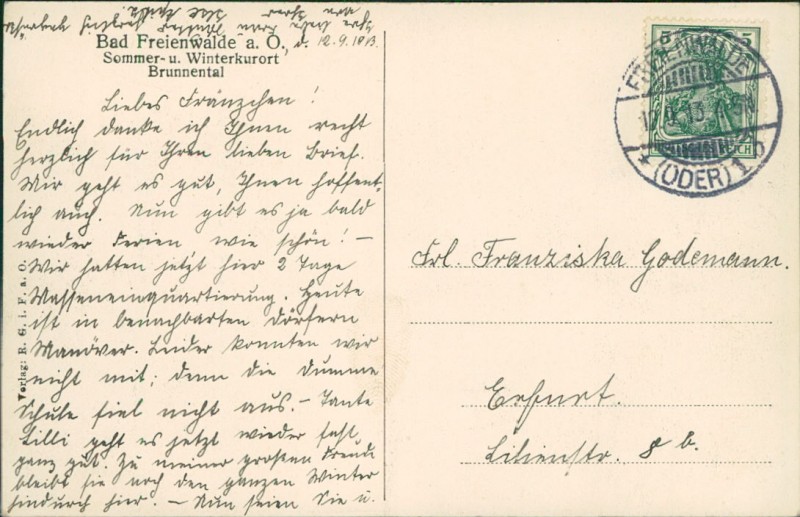 Bad Freienwalde a. O., d. 12.9.1913.
Sommer- u. Winterkurort
Brunnental
Liebes Fränzchen!
Endlich danke ich Ihnen recht
herzlich für Ihren lieben Brief.
Wir geht es gut, Ihnen hoffent-
lich auch. Nun gibt es ja bald
wieder Ferien wie schön! -
Wir hatten jetzt hier 2 Tage
Masseneinquartierung. Heute
ist in benachbarten Dörfern
Manöver. Leider konnten wir
nicht mit; denn die dumme
Schule fiel nicht aus. - Tante
Lilli geht es jetzt wieder fast
ganz gut. Zu meiner großen Freude
bleibt sie noch den ganzen Winter
hindurch hier. - Nun seien Sie u.
Verlag: R. G. i. F. a. O.
5 5
FREIENWALDE
13
* (ODER) 1 b
REICH
Frl. Franziska Godemann.
Erfurt.
Lilienstr. 8 b.